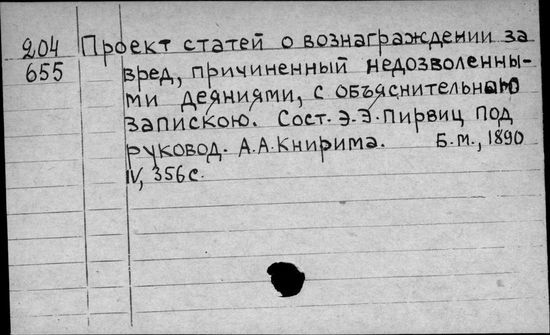 204 Проект статей о вознаграждении за
655 вред, причиненный недозволенны-
ми деяниями, с объяснительною
запискою. Сост. Э.Э.Пирвиц под
руковод. А.А.Книрима. Б.м., 1890
IV, 356с.